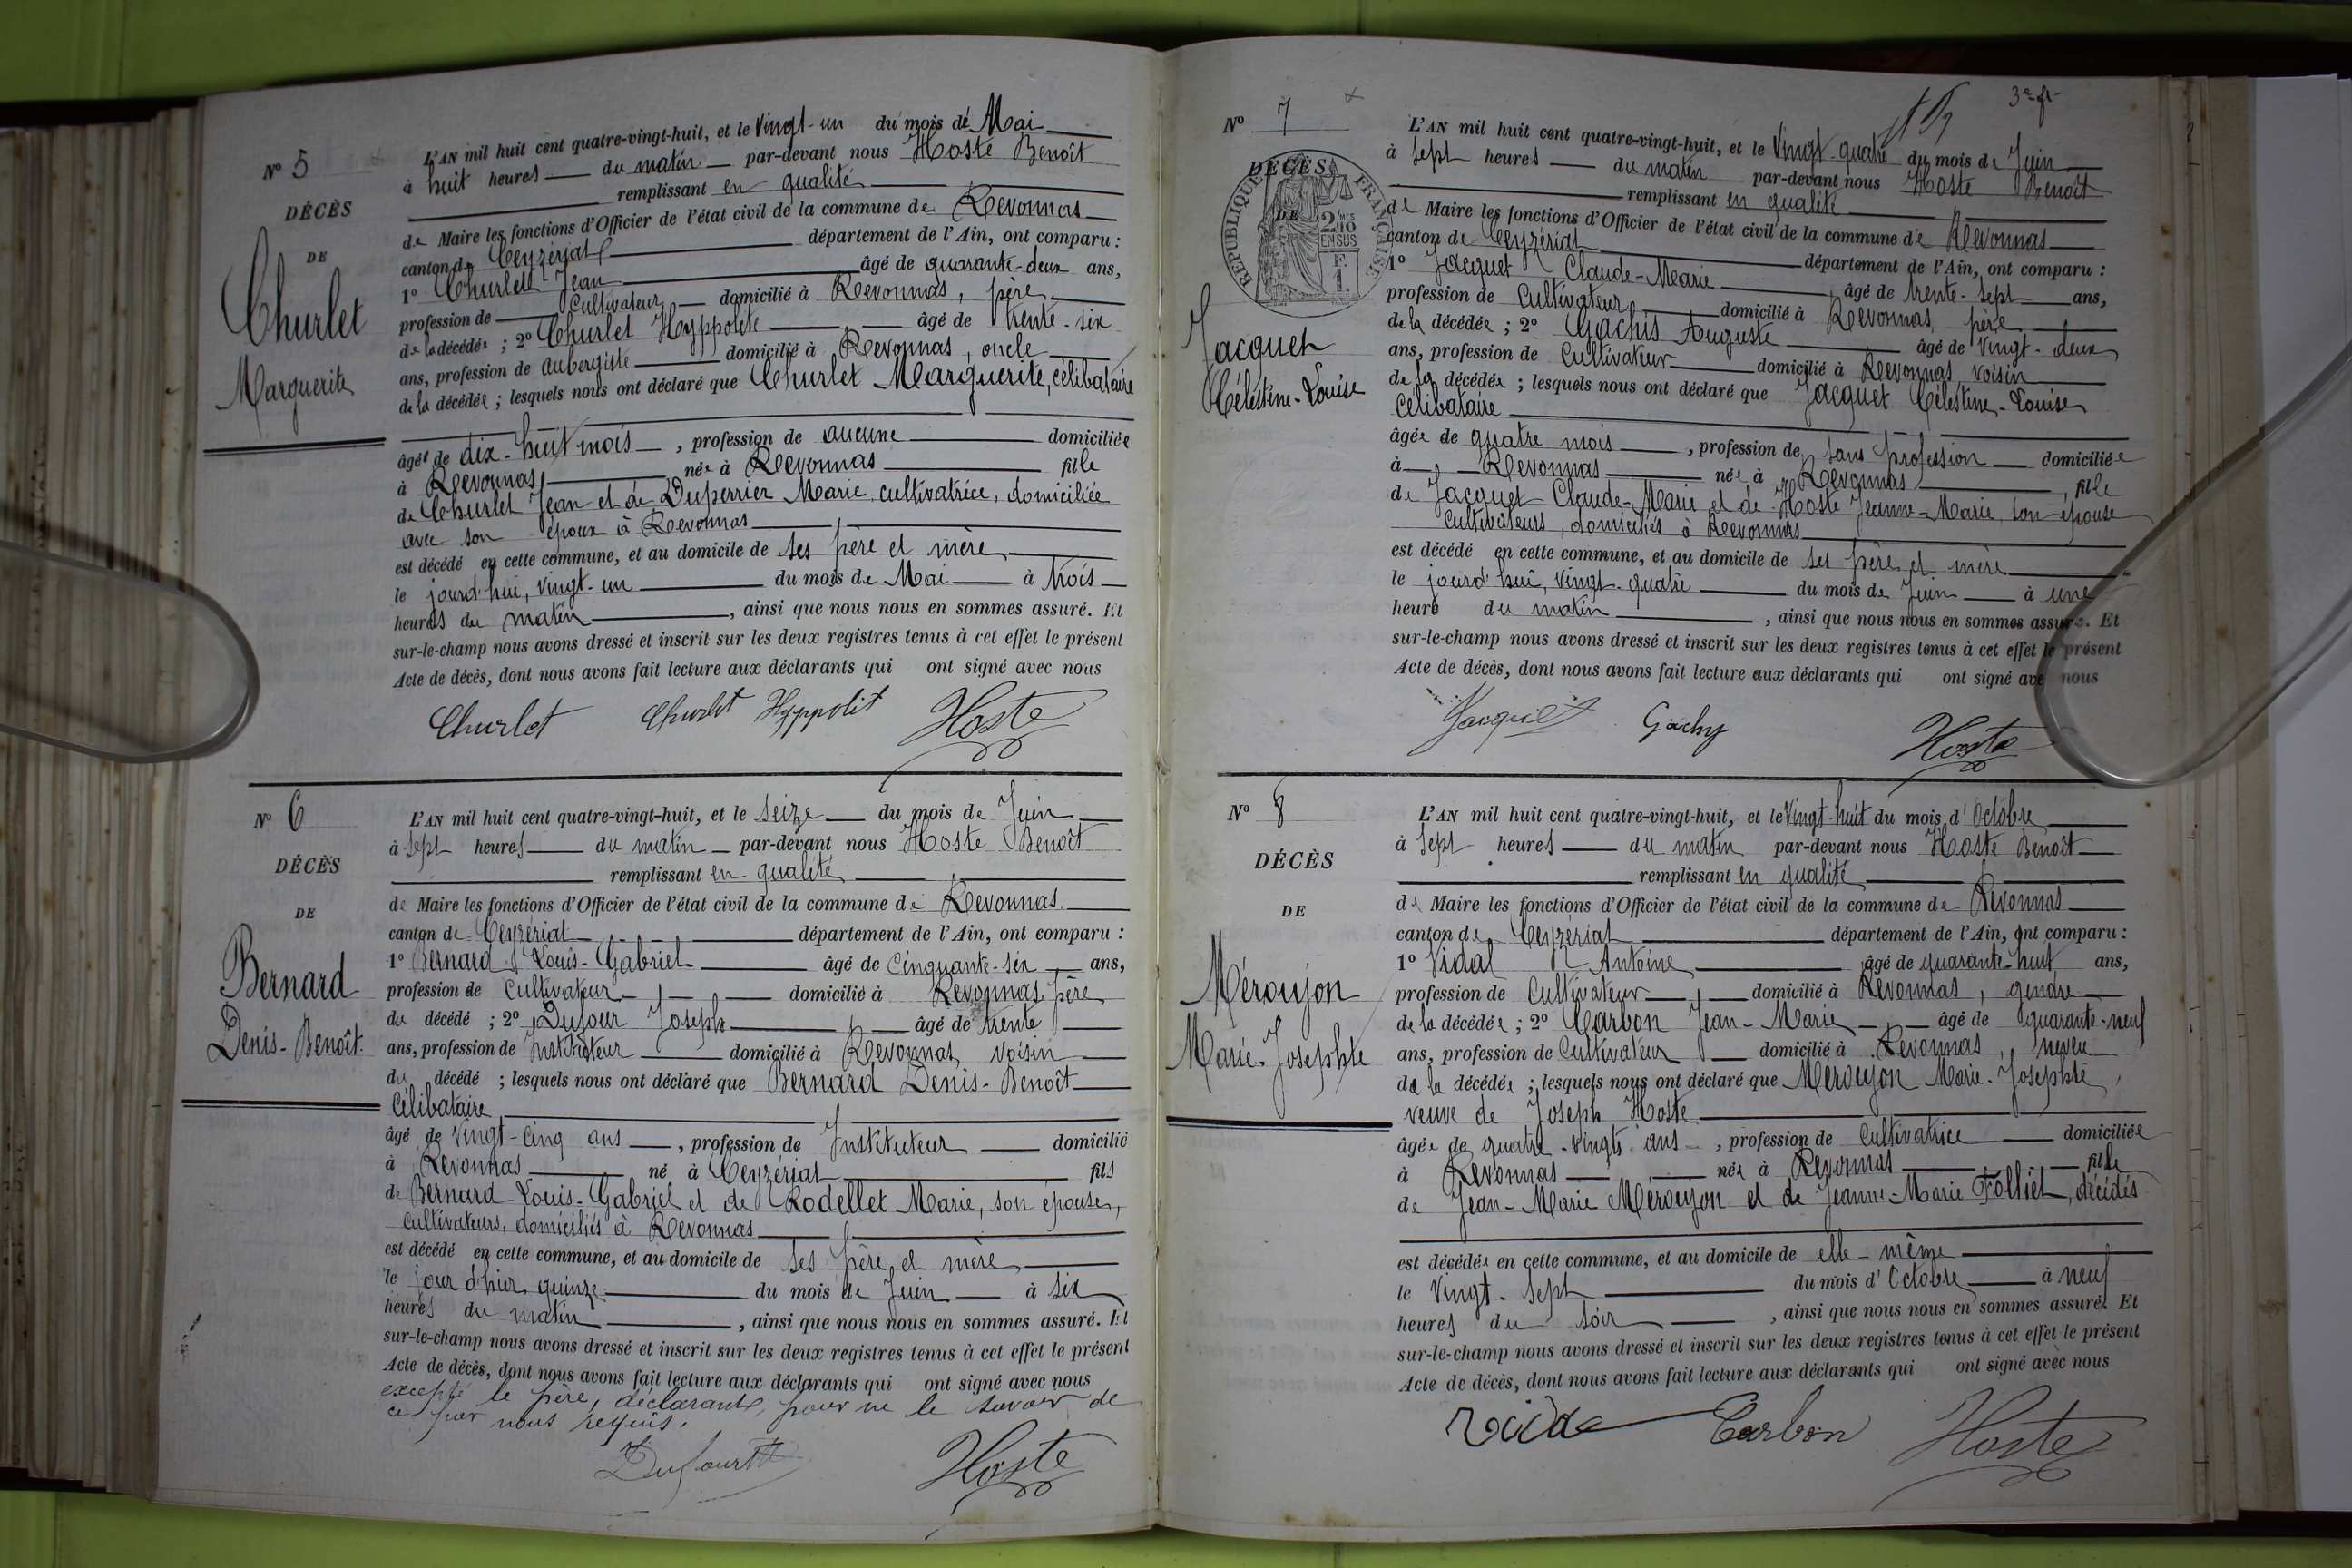 N° 5
DÉCÈS
DE
Churlet
Marguerite
L'AN mil huit cent quatre-vingt-huit, et le Vingt-un du mois de Mai
à huit heures du matin par-devant nous Hoste Benoît
remplissant en qualité
de Maire les fonctions d'Officier de l'état civil de la commune de Revonnas
canton de Ceyzériat département de l'Ain, ont comparu :
1° Churlet Jean âgé de quarante-deux ans,
profession de Cultivateur domicilié à Revonnas, père
de la décédée ; 2° Churlet Hyppolete âgé de trente-six
ans, profession de aubergiste domicilié à Revonnas, oncle
de la décédée ; lesquels nous ont déclaré que Churlet Marguerite, célibataire
âgée de dix-huit mois, profession de aucune domiciliée
à Revonnas, née à Revonnas fille
de Churlet Jean et de Duperrier Marie, cultivatrice, domiciliée
avec son époux à Revonnas
est décédé en cette commune, et au domicile de ses père et mère
le jourd'hui, vingt-un du mois de Mai à trois
heures du matin, ainsi que nous nous en sommes assuré. Et
sur-le-champ nous avons dressé et inscrit sur les deux registres tenus à cet effet le présent
Acte de décès, dont nous avons fait lecture aux déclarants qui ont signé avec nous
Churlet Churlet Hyppolit Hoste
N° 6
DÉCÈS
DE
Bernard
Denis-Benoît.
L'AN mil huit cent quatre-vingt-huit, et le Seize du mois de Juin
à Sept heures du matin par-devant nous Hoste Benoît
remplissant en qualité
de Maire les fonctions d'Officier de l'état civil de la commune de Revonnas
canton de Ceyzériat département de l'Ain, ont comparu :
1° Bernard Louis-Gabriel âgé de Cinquante-six ans,
profession de Cultivateur domicilié à Revonnas père
du décédé ; 2° Dufour Joseph âgé de trente
ans, profession de Instituteur domicilié à Revonnas, voisin
du décédé ; lesquels nous ont déclaré que Bernard Denis-Benoît
Célibataire
âgé de vingt-cinq ans, profession de Instituteur domicilié
à Revonnas né à Ceyzériat fils
de Bernard Louis-Gabriel et de Rodellet Marie, son épouse,
cultivateurs, domiciliés à Revonnas
est décédé en cette commune, et au domicile de ses père et mère
le jour d'hier quinze du mois de Juin à six
heures du matin, ainsi que nous nous en sommes assuré. Et
sur-le-champ nous avons dressé et inscrit sur les deux registres tenus à cet effet le présent
Acte de décès, dont nous avons fait lecture aux déclarants qui ont signé avec nous
excepté le père, déclarant, pour ne le savoir de
ce par nous requis.
Dufour Hoste
3e ft
N° 7
DÉCÈS
DE
RÉPUBLIQUE FRANÇAISE
2/10
EN SUS
Jacquet
Célestine-Louise
L'AN mil huit cent quatre-vingt-huit, et le Vingt-quatre du mois de Juin
à Sept heures du matin par-devant nous Hoste Benoît
remplissant en qualité
de Maire les fonctions d'Officier de l'état civil de la commune de Revonnas
canton de Ceyzériat département de l'Ain, ont comparu :
1° Jacquet Claude-Marie âgé de trente-sept ans,
profession de Cultivateur domicilié à Revonnas, père
de la décédée ; 2° Gachis Auguste âgé de Vingt-deux
ans, profession de Cultivateur domicilié à Revonnas voisin
de la décédée ; lesquels nous ont déclaré que Jacquet Célestine-Louise
Célibataire
âgée de quatre mois, profession de sans profession domiciliée
à Revonnas née à Revonnas, fille
de Jacquet Claude-Marie et de Hoste Jeanne-Marie, son épouse
Cultivateurs, domiciliés à Revonnas
est décédé en cette commune, et au domicile de ses père et mère
le jourd'hui, vingt-quatre du mois de Juin à une
heure du matin, ainsi que nous nous en sommes assuré. Et
sur-le-champ nous avons dressé et inscrit sur les deux registres tenus à cet effet le présent
Acte de décès, dont nous avons fait lecture aux déclarants qui ont signé avec nous
Jacquet Gachy Hoste
N° 8
DÉCÈS
DE
Méroujon
Marie-Josephte
L'AN mil huit cent quatre-vingt-huit, et le Vingt-huit du mois d'Octobre
à Sept heures du matin par-devant nous Hoste Benoît
remplissant en qualité
de Maire les fonctions d'Officier de l'état civil de la commune de Revonnas
canton de Ceyzériat département de l'Ain, ont comparu :
1° Vidal Antoine âgé de quarante-huit ans,
profession de Cultivateur domicilié à Revonnas, gendre
de la décédée ; 2° Carbon Jean-Marie âgé de quarante-neuf
ans, profession de Cultivateur domicilié à Revonnas, neveu
de la décédée ; lesquels nous ont déclaré que Méroujon Marie-Josephte,
veuve de Joseph Hoste
âgée de quatre-vingts ans, profession de Cultivatrice domiciliée
à Revonnas née à Revonnas fille
de Jean-Marie Méroujon et de Jeanne-Marie Folliet, décédés
est décédée en cette commune, et au domicile de elle-même
le Vingt-Sept du mois d'Octobre à neuf
heures du soir, ainsi que nous nous en sommes assuré. Et
sur-le-champ nous avons dressé et inscrit sur les deux registres tenus à cet effet le présent
Acte de décès, dont nous avons fait lecture aux déclarants qui ont signé avec nous
Carbon Hoste